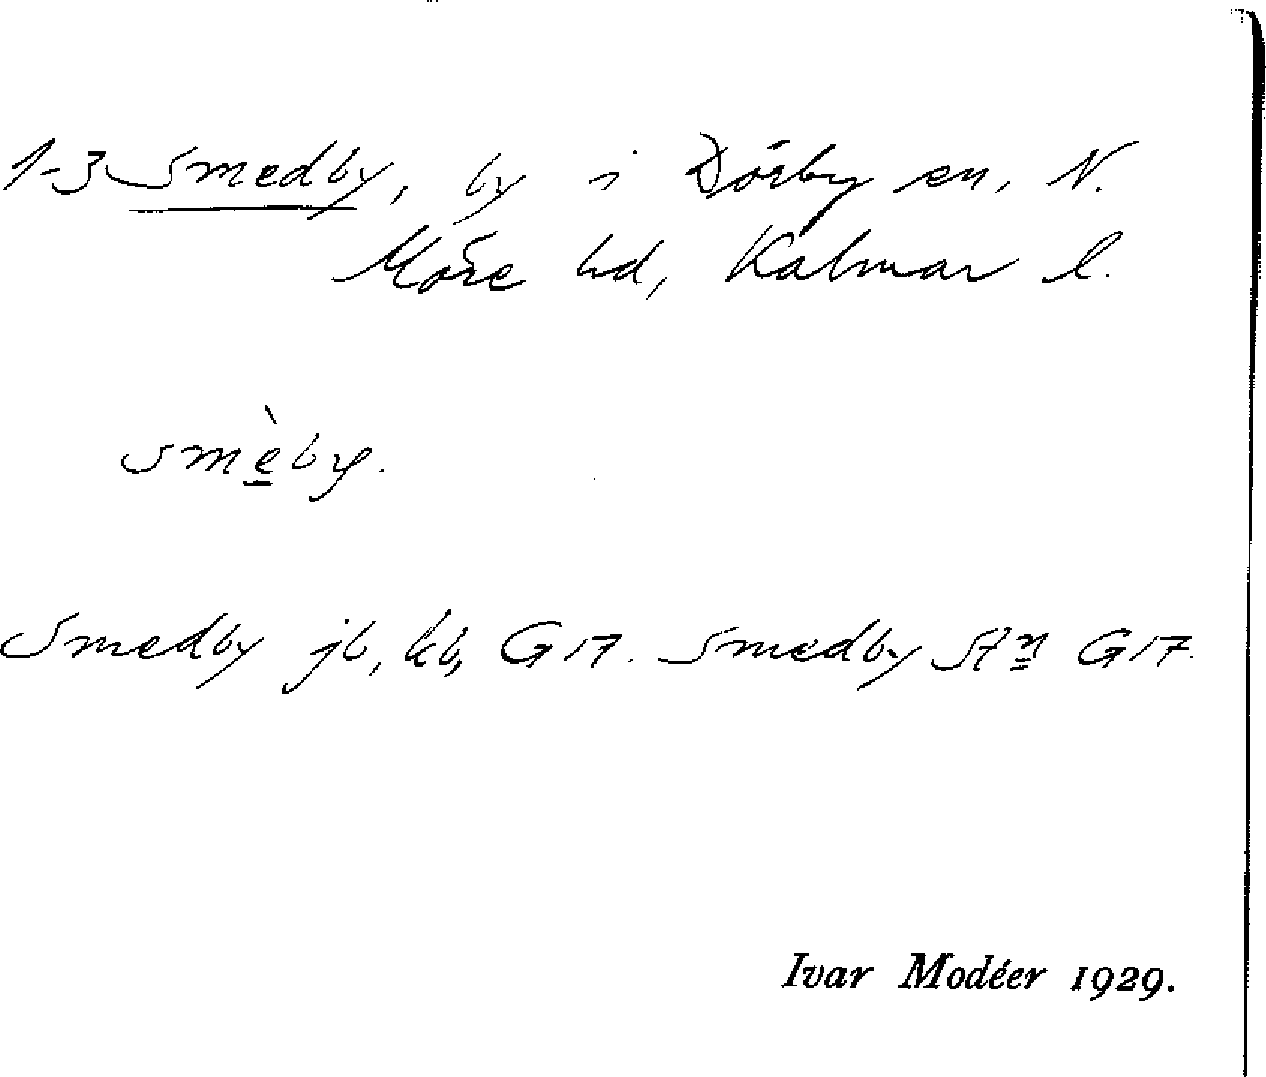 1-3 Smedby, by i Dörby sn, N.
Möre hd, Kalmar l.
smèby.
Smedby jb, kb, G 17. Smedby Stn G 17.
Ivar Modéer 1929.